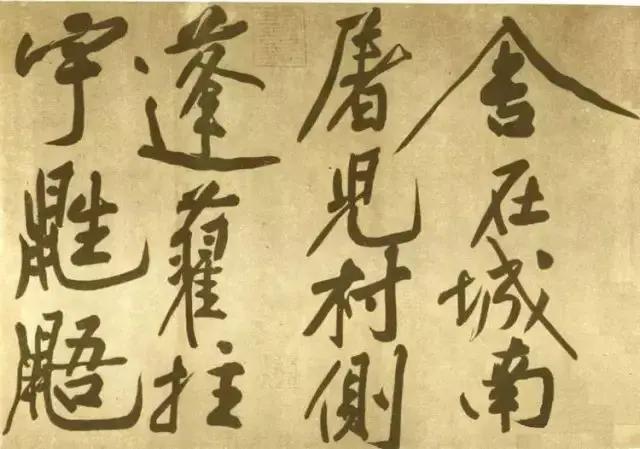 舍在城南
屠兒村側
蓬藋拄
宇鼪鼯